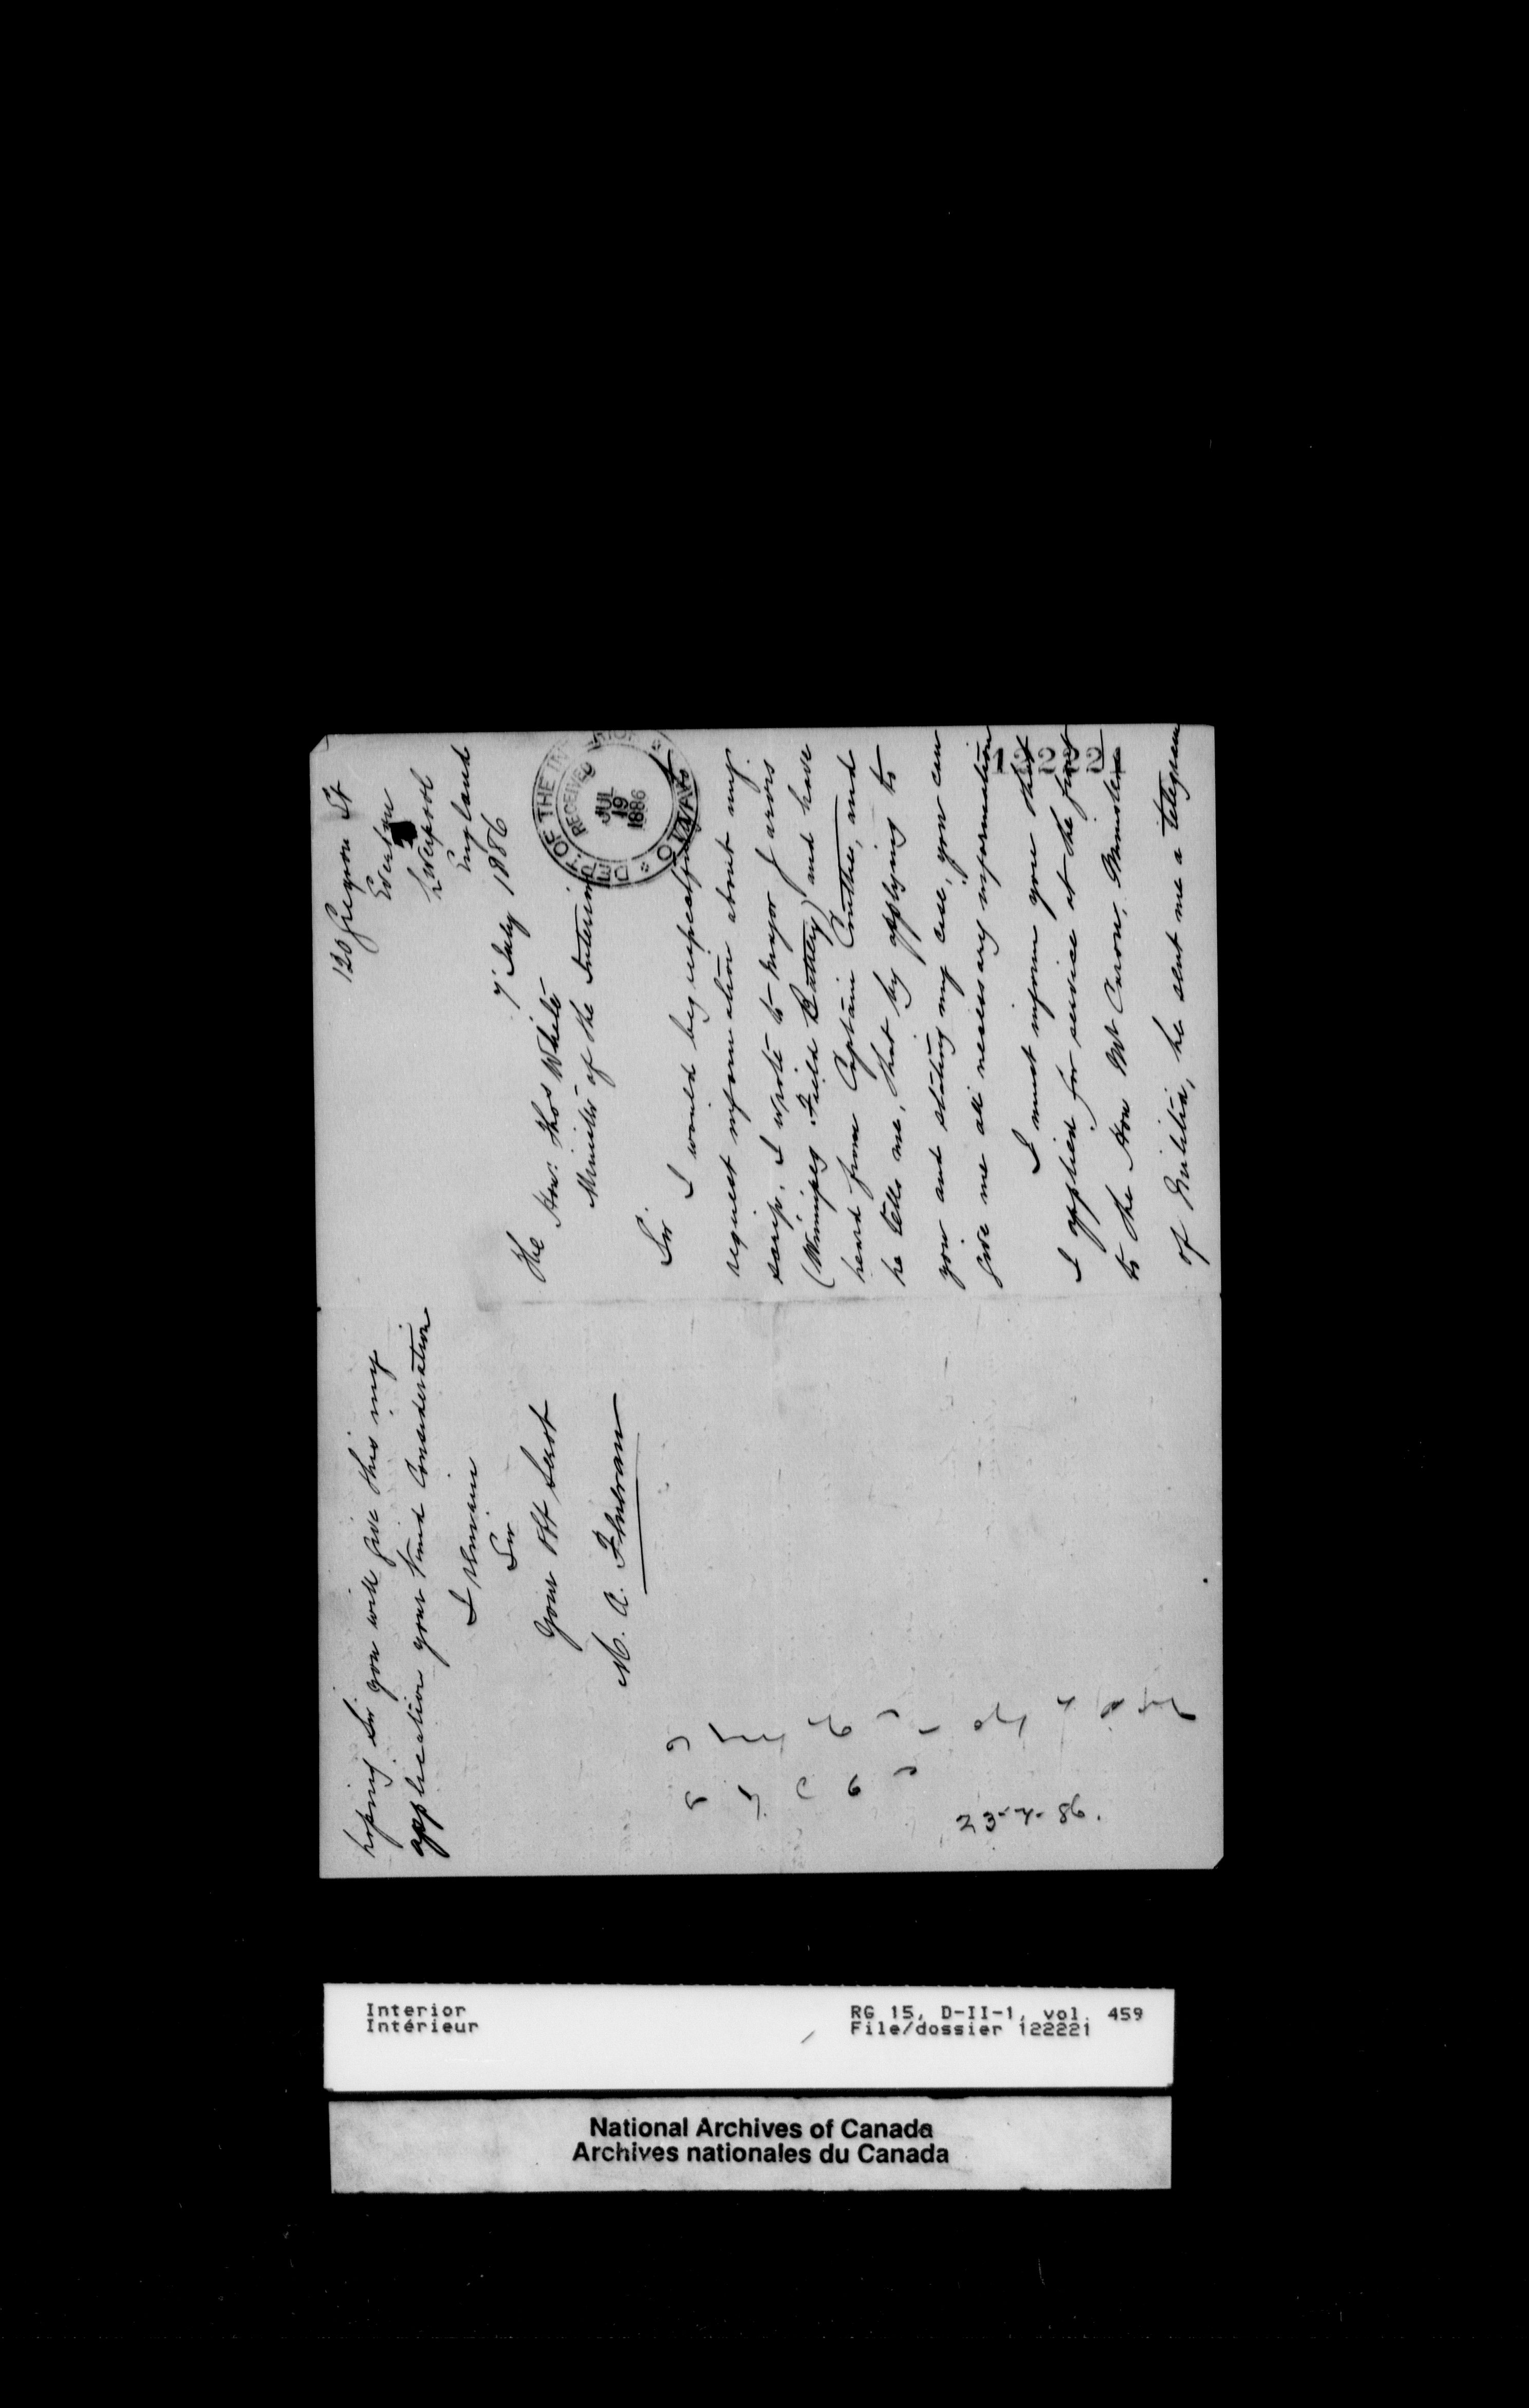 120 Gregson St
Everton
Liverpool
England
7 July 1886
The Hon: Thos White
Minister of the Interior
DEPT. OF THE INTERIOR
RECEIVED
JUL
19
1886
OTTAWA
Sir
I would beg respectfully to
request information about my
scrip. I wrote to Major Jarvis
(Winnipeg Field Battery) and have
heard from Captain Coutlee, and
he tells me, that by applying to
you and stating my case, you can
give me all necessary information
122221
I must inform you that
I applied for service at the front
to the Hon Mr Caron, Minister
of Militia, he sent me a telegram
hoping Sir you will give this my
application your kind Consideration
I remain
Sir
Your Obt Servt
M. A.
23-7-86.
Interior
Intérieur
RG 15, D-II-1, vol. 459
File/dossier 122221
National Archives of Canada
Archives nationales du Canada